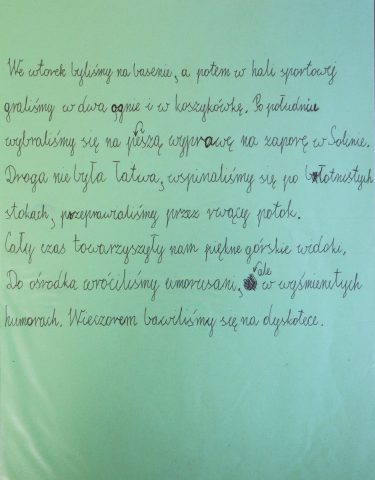 We wtorek byliśmy na basenie, a potem w hali sportowej
graliśmy w dwa ognie i w koszykówkę. Po południu
wybraliśmy się na pieszą wyprawę na zaporę w Solinie.
Droga nie była łatwa, wspinaliśmy się po błotnistych
stokach, przeprawialiśmy przez rwący potok.
Cały czas towarzyszyły nam piękne górskie widoki.
Do ośrodka wróciliśmy umorusani, ale w wyśmienitych
humorach. Wieczorem bawiliśmy się na dyskotece.